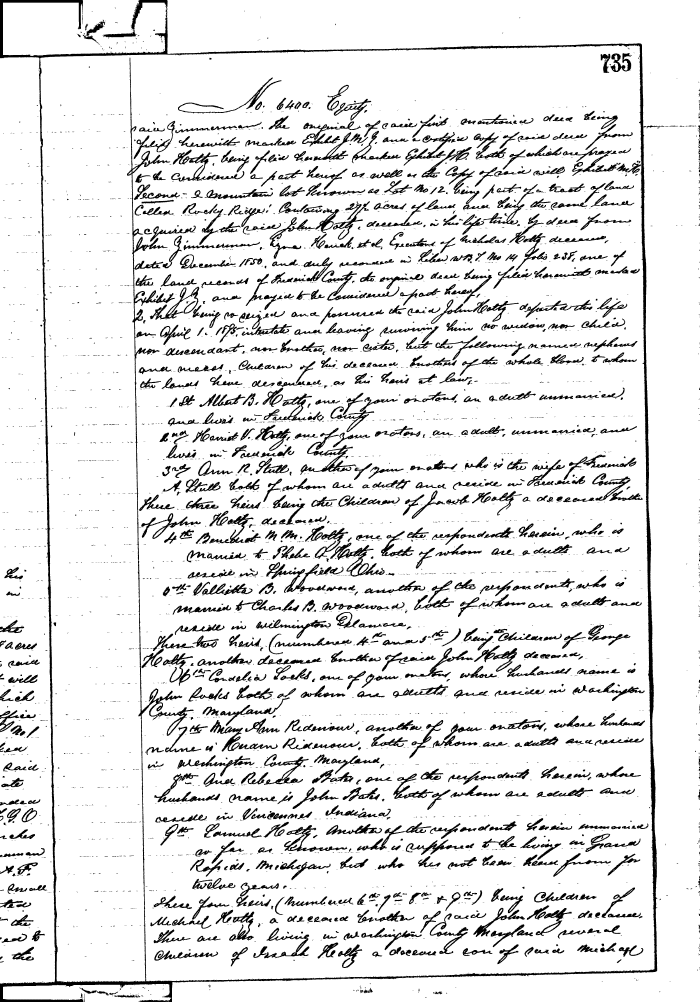 735
No. 6400. Equity.
said Zimmerman. The original of said first mentioned deed being
filed herewith marked Exhibit J.M.Z. and a certified copy of said deed from
John Hotty, being filed herewith marked Exhibit J.H. both of which are prayed
to be considered a part hereof as well as the Copy of said will Exhibit M.H.
Second - A mountain lot known as Lot No 12. being part of a tract of land
Called Rocky Ridge. Containing 27½ acres of land and being the same land
acquired by the said John Hotty, deceased, in his life time, by deed from
John Zimmerman, Ezra Houck, et al, Executors of Nicholas Hotty deceased,
dated December 1850, and duly recorded in Liber W.B.T. No 14 folio 238, one of
the land records of Frederick County, the original deed being filed herewith marked
Exhibit J.Z. and prayed to be considered a part hereof.
2, That being so seized and possessed the said John Hotty departed this life
on April 1. intestate and leaving surviving him no widow, nor child,
nor descendant, nor brother, nor sister, but the following named nephews
and nieces, Children of his deceased brothers of the whole blood, to whom
the lands have descended, as his heirs at law,-
1st Albert B. Hotty, one of your orators, an adult unmarried,
and lives in Frederick County
2nd Harriet V. Hotty, one of your orators, an adult, unmarried, and
lives in Frederick County.
3rd Ann R. Stull, another of your orators who is the wife of Frederick
A. Stull both of whom are adults and reside in Frederick County
These three heirs being the Children of Jacob Hotty a deceased brother
of John Hotty, deceased.
4th Benedict M. M. Hotty, one of the respondents herein, who is
married to Hotty, both of whom are adults and
reside in Springfield Ohio-
5th Vallietta B. Woodward, another of the respondents, who is
married to Charles B. Woodward, both of whom are adults and
reside in Wilmington Delaware,
These two heirs, (numbered 4th and 5th) being children of George
Hotty, another deceased brother of said John Hotty deceased,
6th Cordelia Socks, one of your orators, whose husbands name is
John Socks both of whom are adults and reside in Washington
County, Maryland,
7th Mary Ann Ridenour, another of your orators, whose husbands
name is Hiram Ridenour, both of whom are adults and reside
in Washington County, Maryland,
8th And Rebecca Bates, one of the respondents herein, whose
husbands name is John Bates, both of whom are adults and
reside in Vincennes Indiana.
9th Samuel Hotty, Another of the respondents herein unmarried
so far as known, who is supposed to be living in Grand
Rapids, Michigan, but who has not been heard from for
twelve years.
These four heirs, (numbered 6th 7th 8th & 9th) being Children of
Michael Hotty, a deceased brother of said John Hotty deceased.
There are also living in Washington County Maryland several
Children of Joseph Hotty a deceased son of said Michael